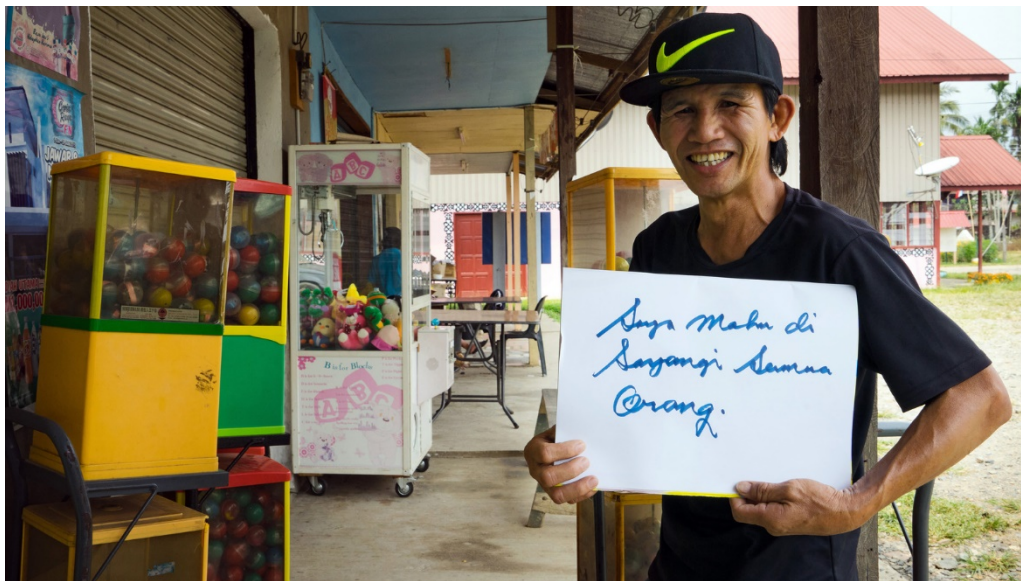 Saya mahu di
Sayangi Semua
Orang.
JAWARA
ABC
ABC